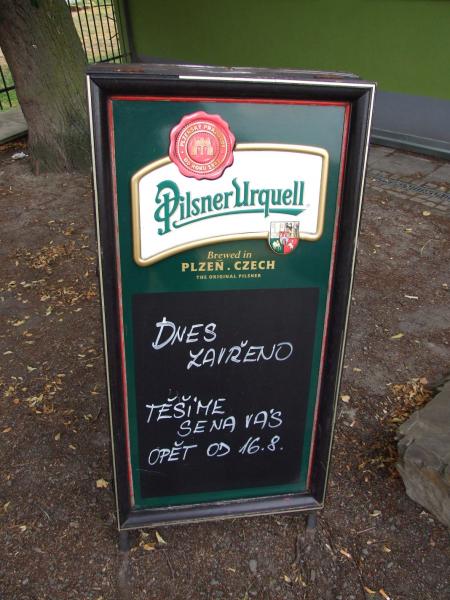 Pilsner Urquell
Brewed in
PLZEŇ. CZECH
THE ORIGINAL PILSNER
DNES
ZAVŘENO
TĚŠÍME
SE NA VÁS
OPĚT OD 16.8.